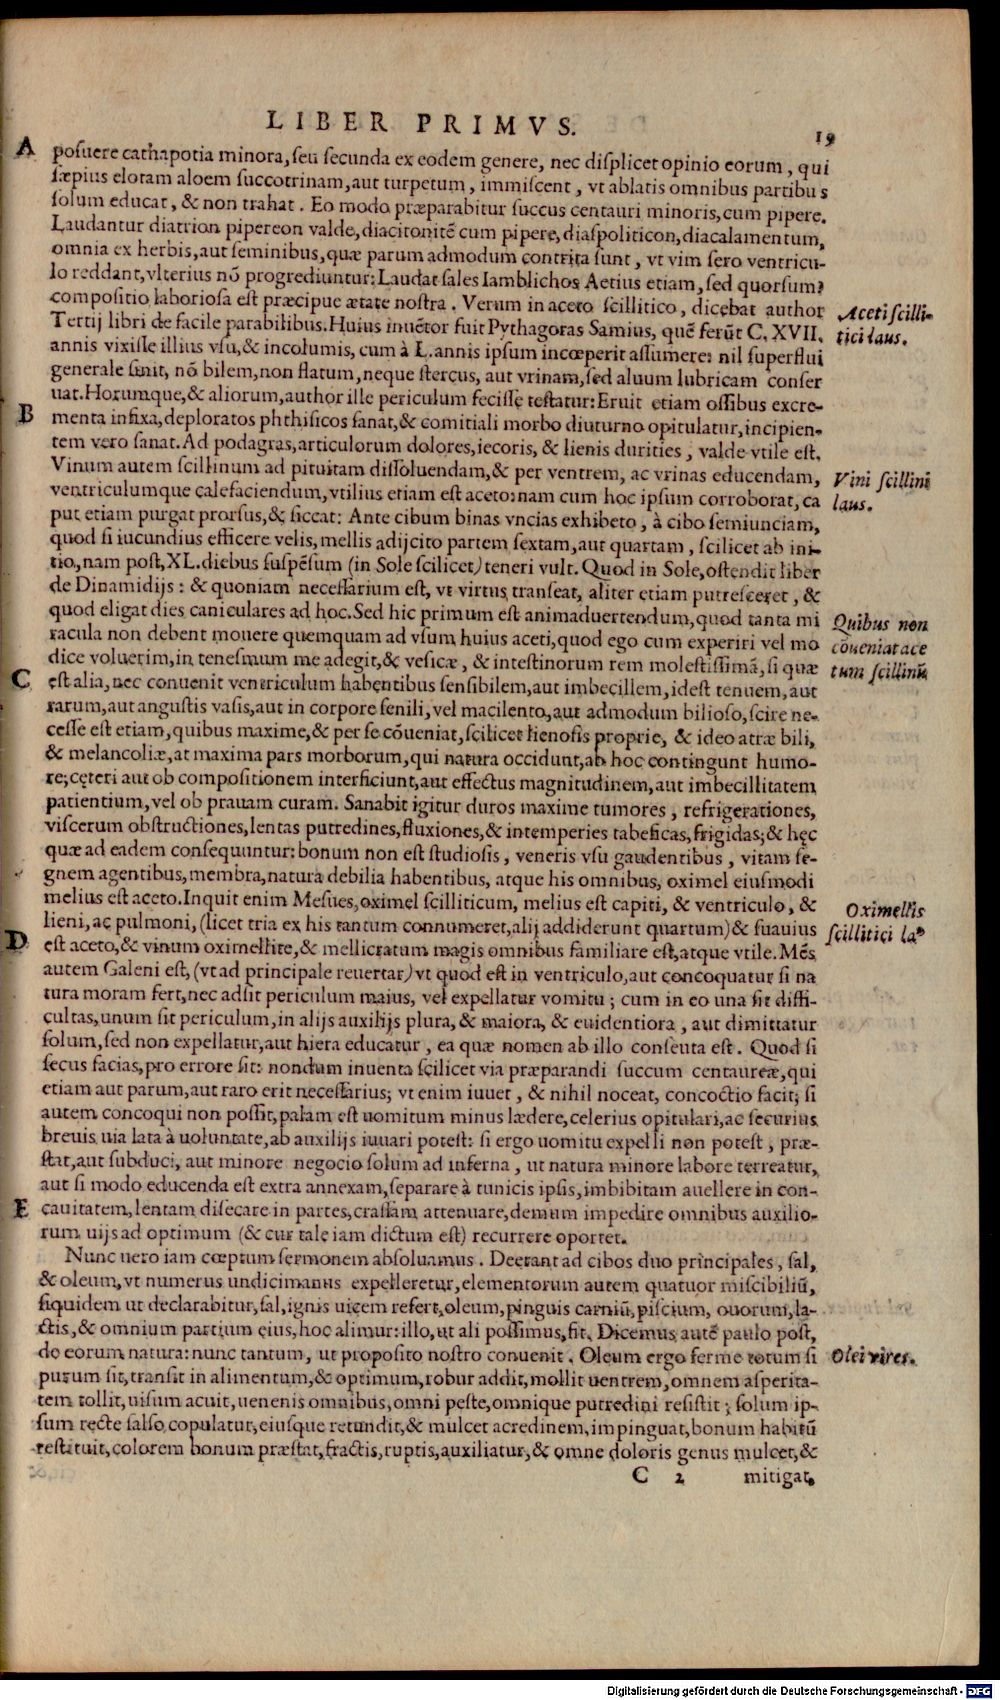 LIBER PRIMVS.
19
A
posuere cathapotia minora, seu secunda ex eodem genere, nec displicet opinio eorum, qui
sæpius elotam aloem succotrinam, aut turpetum, immiscent, vt ablatis omnibus partibus
solum educat, & non trahat. Eo modo præparabitur succus centauri minoris, cum pipere.
Laudantur diatrion pipereon valde, diacitonitē cum pipere, diaspoliticon, diacalamentum,
omnia ex herbis, aut seminibus, quæ parum admodum contrita sunt, vt vim sero ventricu-
lo reddant, vlterius nō progrediuntur: Laudat sales Iamblichos Aetius etiam, sed quorsum?
compositio laboriosa est præcipue ætate nostra. Verum in aceto scillitico, dicebat author
Tertij libri de facile parabilibus. Huius inuētor fuit Pythagoras Samius, quē ferūt C. XVII.
annis vixisse illius vsu, & incolumis, cum à L. annis ipsum incœperit assumere: nil superflui
generale sinit, nō bilem, non flatum, neque stercus, aut vrinam, sed aluum lubricam conser
uat. Horumque, & aliorum, author ille periculum fecisse testatur: Eruit etiam ossibus excre-
B
menta infixa, deploratos phthisicos sanat, & comitiali morbo diuturno opitulatur, incipien-
tem vero sanat. Ad podagras, articulorum dolores, iecoris, & lienis durities, valde vtile est.
Vinum autem scillinum ad pituitam dissoluendam, & per ventrem, ac vrinas educendam,
ventriculumque calefaciendum, vtilius etiam est aceto: nam cum hoc ipsum corroborat, ca
put etiam purgat prorsus, & siccat: Ante cibum binas vncias exhibeto, à cibo semiunciam,
quod si iucundius efficere velis, mellis adijcito partem sextam, aut quartam, scilicet ab ini-
tio, nam post, XL. diebus suspēsum (in Sole scilicet) teneri vult. Quod in Sole, ostendit liber
de Dinamidijs: & quoniam necessarium est, vt virtus transeat, aliter etiam putresceret, &
quod eligat dies caniculares ad hoc. Sed hic primum est animaduertendum, quod tanta mi
racula non debent mouere quemquam ad vsum huius aceti, quod ego cum experiri vel mo
dice voluerim, in tenesmum me adegit, & vesicæ, & intestinorum rem molestissimā, si quæ
C
est alia, nec conuenit ventriculum habentibus sensibilem, aut imbecillem, idest tenuem, aut
rarum, aut angustis vasis, aut in corpore senili, vel macilento, aut admodum bilioso, scire ne-
cesse est etiam, quibus maxime, & per se cōueniat, scilicet lienosis proprie, & ideo atræ bili,
& melancoliæ, at maxima pars morborum, qui natura occidunt, ab hoc contingunt humo-
re; cęteri aut ob compositionem interficiunt, aut effectus magnitudinem, aut imbecillitatem
patientium, vel ob prauam curam. Sanabit igitur duros maxime tumores, refrigerationes,
viscerum obstructiones, lentas putredines, fluxiones, & intemperies tabeficas, frigidas; & hęc
quæ ad eadem consequuntur: bonum non est studiosis, veneris vsu gaudentibus, vitam se-
gnem agentibus, membra, natura debilia habentibus, atque his omnibus, oximel eiusmodi
melius est aceto. Inquit enim Mesues, oximel scilliticum, melius est capiti, & ventriculo, &
lieni, ac pulmoni, (licet tria ex his tantum connumeret, alij addiderunt quartum) & suauius
D
est aceto, & vinum oximellite, & mellicratum magis omnibus familiare est, atque vtile. Mēs
autem Galeni est, (vt ad principale reuertar) vt quod est in ventriculo, aut concoquatur si na
tura moram fert, nec adsit periculum maius, vel expellatur vomitu; cum in eo una sit diffi-
cultas, unum sit periculum, in alijs auxilijs plura, & maiora, & euidentiora, aut dimittatur
solum, sed non expellatur, aut hiera educatur, ea quæ nomen ab illo consenta est. Quod si
secus facias, pro errore sit: nondum inuenta scilicet via præparandi succum centaureæ, qui
etiam aut parum, aut raro erit necessarius; vt enim iuuet, & nihil noceat, concoctio facit; si
autem concoqui non possit, palam est uomitum minus lædere, celerius opitulari, ac securius
breuis uia lata à uoluntate, ab auxilijs iuuari potest: si ergo uomitu expelli non potest, præ-
stat, aut subduci, aut minore negocio solum ad inferna, ut natura minore labore terreatur,
aut si modo educenda est extra annexam, separare à tunicis ipsis, imbibitam auellere in con-
E
cauitatem, lentam disecare in partes, crassam attenuare, demum impedire omnibus auxilio-
rum uijs ad optimum (& cur tale iam dictum est) recurrere oportet.
Nunc uero iam cœptum sermonem absoluamus. Deerant ad cibos duo principales, sal,
& oleum, vt numerus undicimanus expelleretur, elementorum autem quatuor miscibiliū,
siquidem ut declarabitur, sal, ignis uicem refert, oleum, pinguis carniū, piscium, ouorum, la-
ctis, & omnium partium eius, hoc alimur: illo, ut ali possimus, fit. Dicemus autē paulo post,
de eorum natura: nunc tantum, ut proposito nostro conuenit. Oleum ergo ferme totum si
purum sit, transit in alimentum, & optimum, robur addit, mollit uentrem, omnem asperita-
tem tollit, uisum acuit, uenenis omnibus, omni peste, omnique putredini resistit; solum ip-
sum recte salso copulatur, eiusque retundit, & mulcet acredinem, impinguat, bonum habitū
restituit, colorem bonum præstat, fractis, ruptis, auxiliatur, & omne doloris genus mulcet, &
C 2 mitigat.
Aceti scilli-
tici laus.
Vini scillini
laus.
Quibus non
cōueniat ace
tum scillinū
Oximellis
scillitici la⁹
Olei vires.
Digitalisierung gefördert durch die Deutsche Forschungsgemeinschaft - DFG